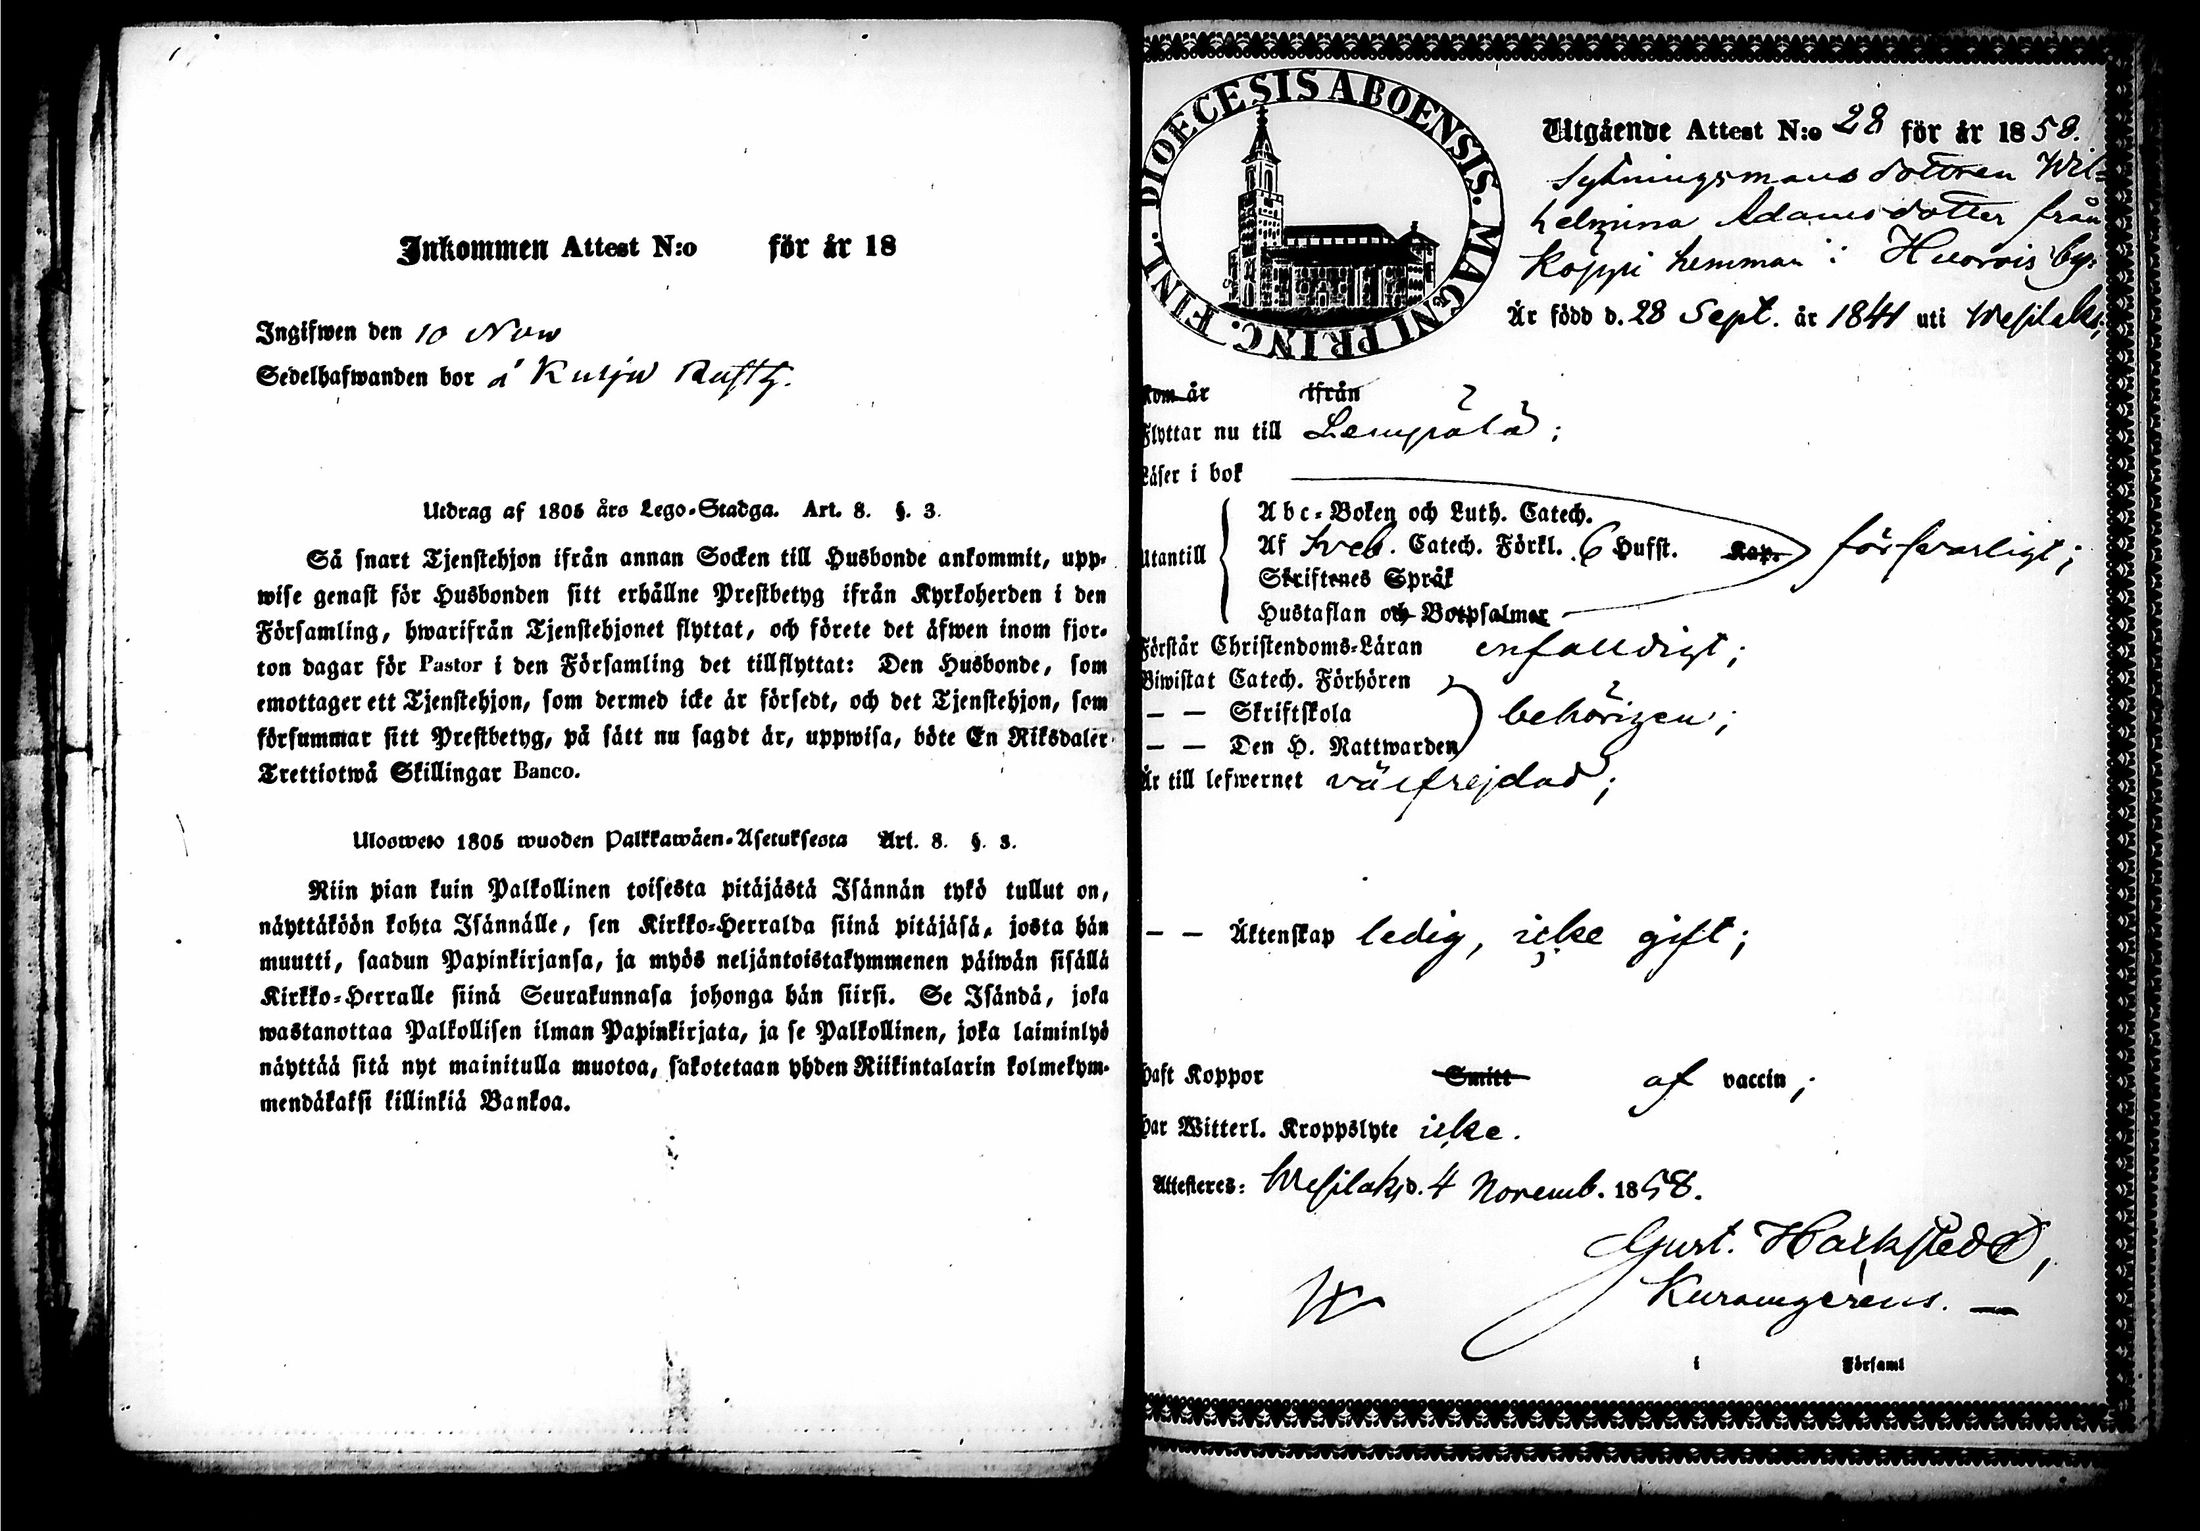 Inkommen Attest N:o för år 18
Ingifwen den 10 Now
Sedelhafwanden bor å Kulju Rusth.
Utdrag af 1805 års Lego-Stadga. Art. 8. §. 3.
Så snart Tjenstehjon ifrån annan Socken till Husbonde ankommit, upp-
wise genast för Husbonden sitt erhållne Prestbetyg ifrån Kyrkoherden i den
Församling, hwarifrån Tjenstehjonet flyttat, och förete det äfwen inom fjor-
ton dagar för Pastor i den Församling det tillflyttat: Den Husbonde, som
emottager ett Tjenstehjon, som dermed icke är försedt, och det Tjenstehjon, som
försummar sitt Prestbetyg, på sätt nu sagdt är, uppwisa, böte En Riksdaler
Trettiotwå Skillingar Banco.
Ulosweto 1805 wuoden Palkkawäen-Asetuksesta Art. 8. §. 3.
Niin pian kuin Palkollinen toisesta pitäjästä Isännän tykö tullut on,
näyttäköön kohta Isännälle, sen Kirkko-Herralda siinä pitäjäsä, josta hän
muutti, saadun Papinkirjansa, ja myös neljäntoistakymmenen päiwän sisällä
Kirkko-Herralle siinä Seurakunnasa johonga hän siirsi. Se Isändä, joka
wastanottaa Palkollisen ilman Papinkirjata, ja se Palkollinen, joka laiminlyö
näyttää sitä nyt mainitulla muotoa, sakotetaan yhden Riikintalarin kolmekym-
mendäkaksi killinkiä Bankoa.
DIOECESIS ABOENSIS. MAGNI PRINC. FINL.
Utgående Attest N:o 28 för år 1858.
Sytningsmansdottren Wil-
helmina Adamsdotter från
Koppi hemman i Huovis by.
Är född d. 28 Sept. år 1841 uti Wesilaks,
Kom år ifrån
Flyttar nu till Lempälä;
Läser i bok
Abc-Boken och Luth. Catech.
Utantill Af Sveb. Catech. Förkl. 6 Hufst. Kap. försvarligt;
Skriftenes Språk
Hustaflan och Botpsalmer
Förstår Christendoms-Läran enfalldigt;
Biwistat Catech. Förhören
— — Skriftskola behörigen;
— — Den H. Nattwarden
Är till lefwernet välfrejdad;
— — Äktenskap ledig, icke gift;
Haft Koppor Smitt af vaccin;
Har Witterl. Kroppslyte icke.
Attesteres: Wesilaks d. 4 Novemb. 1858.
Gust.
i Församl